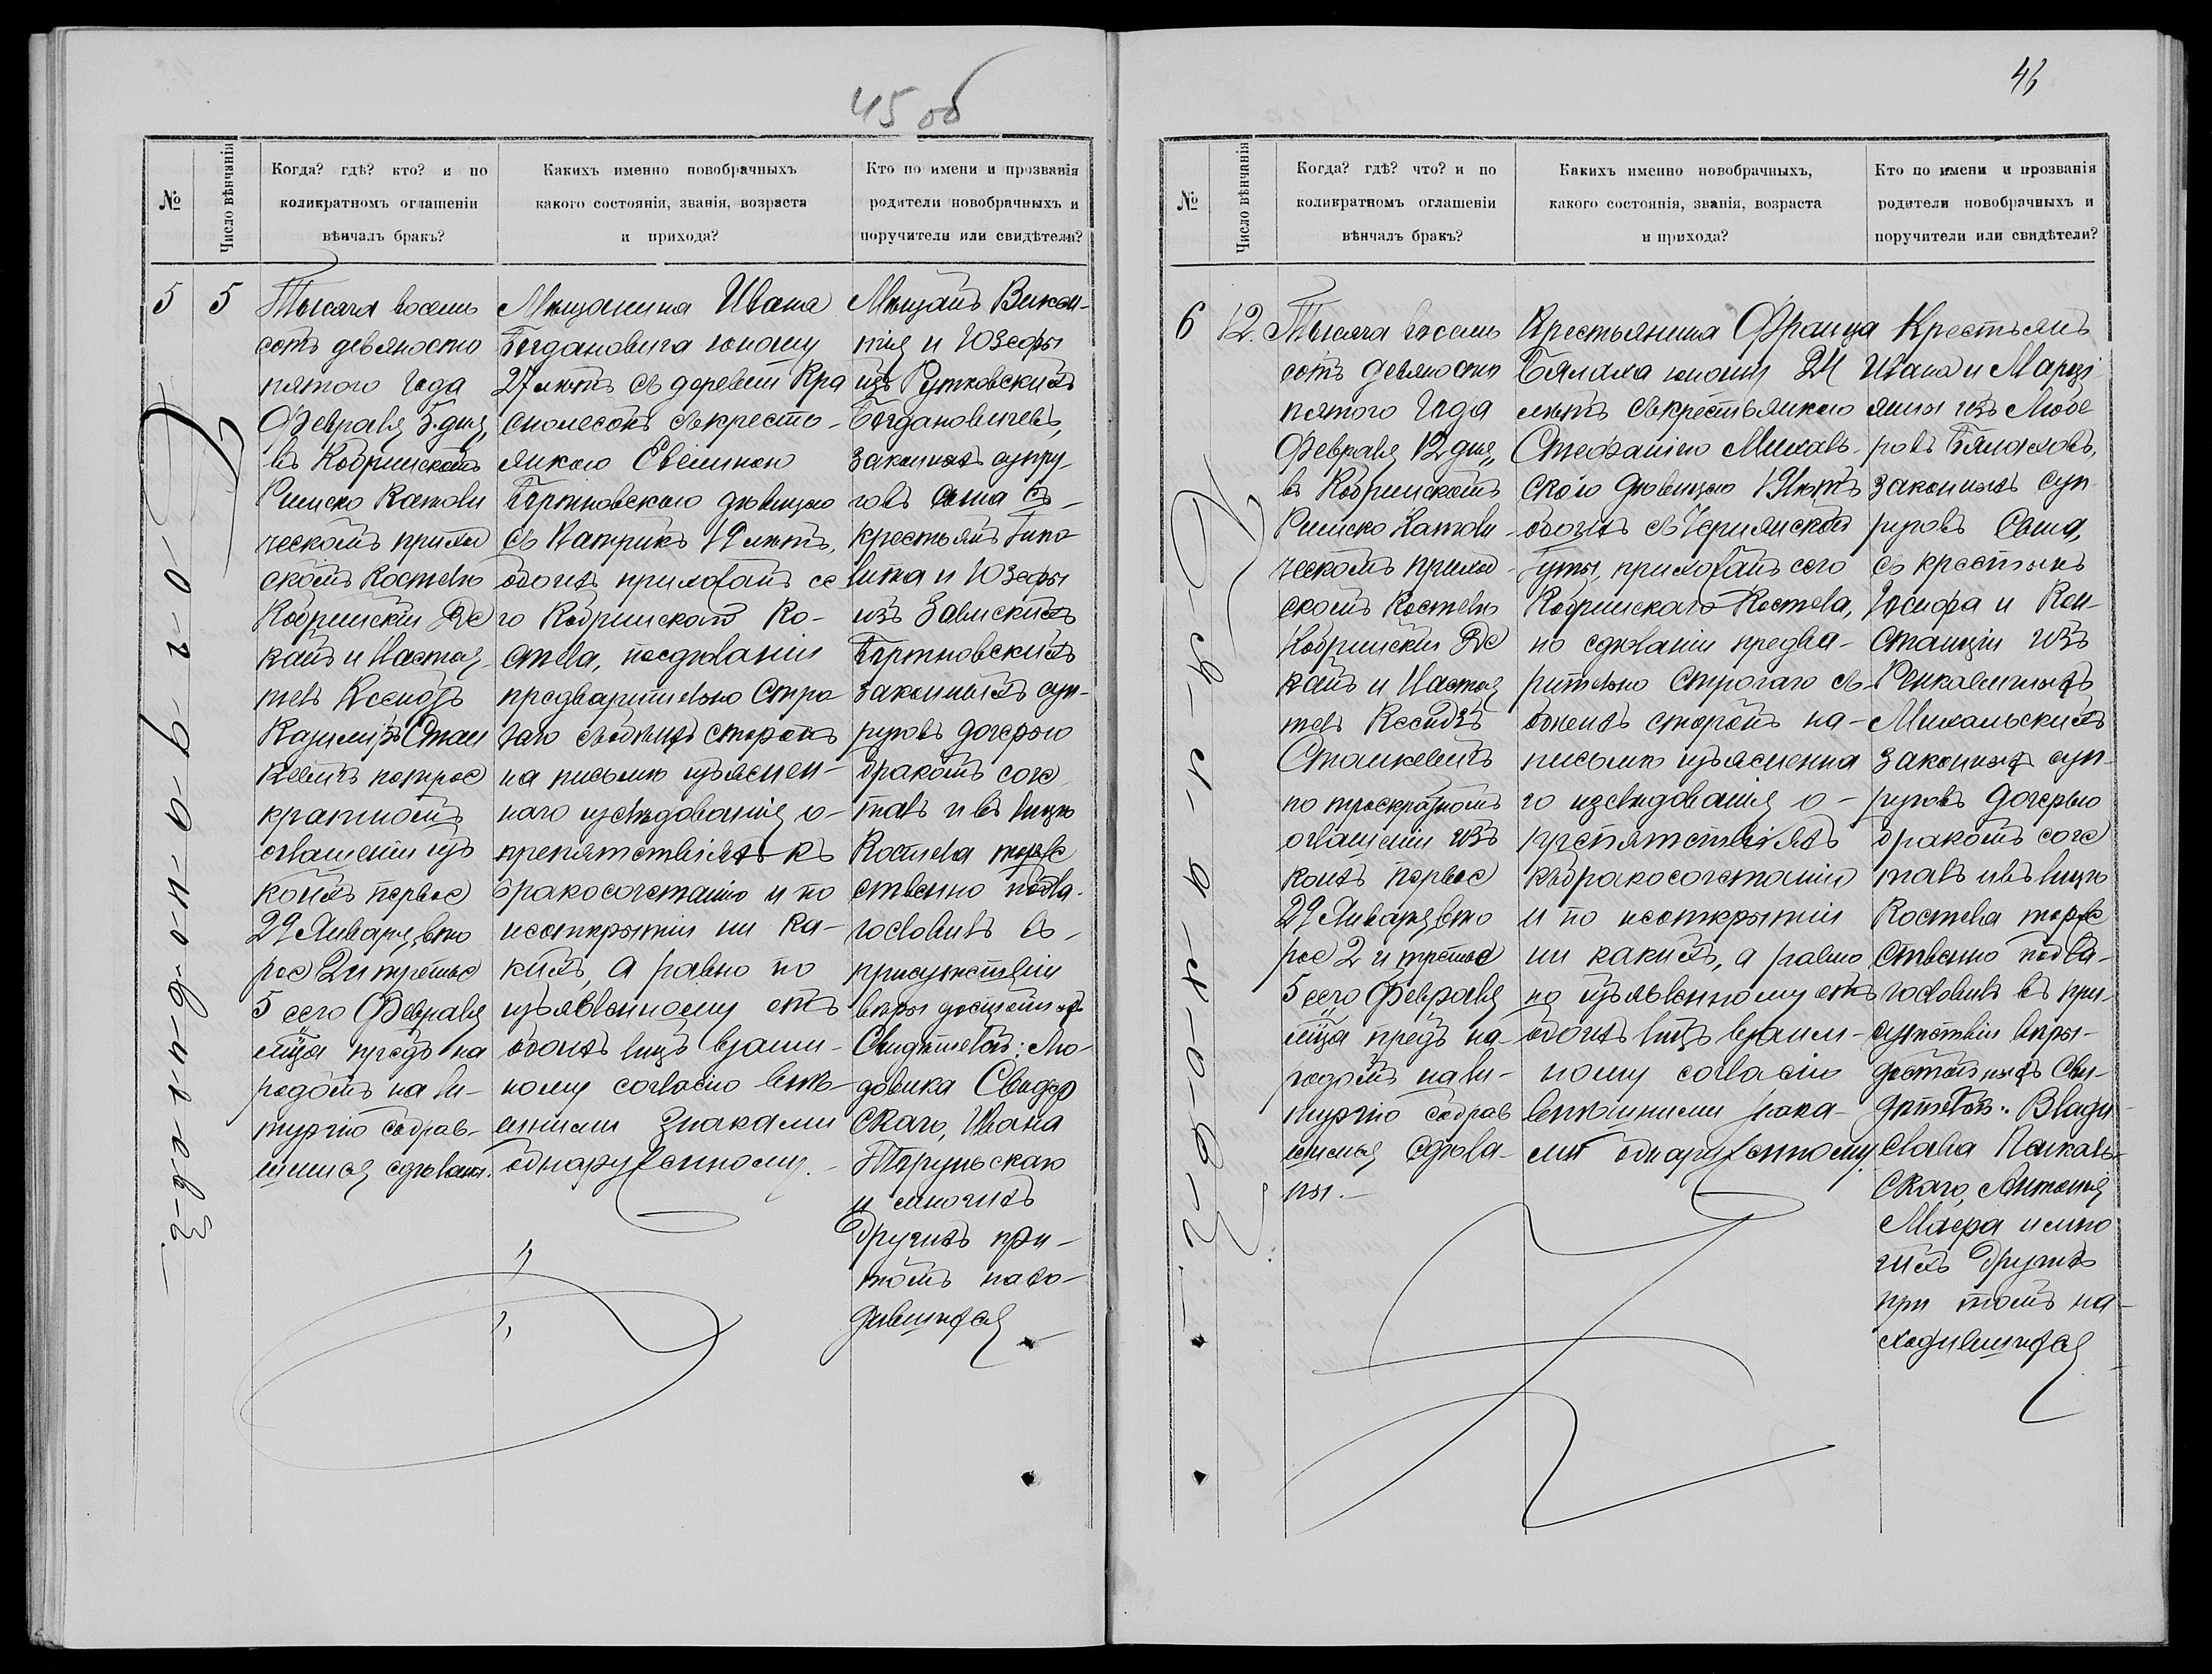 45 об
№
Число вѣнчанія
Когда? гдѣ? кто? и по
коликратномъ оглашеніи
вѣнчалъ бракъ?
Какихъ именно новобрачныхъ
какого состоянія, званія, возраста
и прихода?
Кто по имени и прозванія
родители новобрачныхъ и
поручители или свидѣтели?
5
5
Тысяча восемь
сотъ девяносто
пятого года
Февраля 5. дня,
въ Кобринскомъ
Римско Католи
ческомъ приход
скомъ Костелѣ
Кобринскій Де
канъ и Настоя
тель Ксендзъ
Казимиръ Стан
кевичъ по трое
кратномъ
оглашеніи изъ
коихъ первое
29 Января, вто
рое 2 и третье
5 сего Февраля
мца предъ на
родомъ на ли-
тургію собрав-
шимся сдѣланы.
Мѣщанина Ивана
Богдановича юношу
27 лѣтъ съ деревни Кра
сполесокъ съ кресть-
янкою Евелиною
Бортновскою дѣвицею
съ Патрикъ 19 лѣтъ,
обоихъ прихожанъ се
го Кобринскаго Ко-
стела, по сдѣланіи
предварительно стро
гаго съ обоихъ сторонъ
на письмѣ изъяснен-
наго изслѣдованія о
препятствіяхъ къ
бракосочетанію и по
неоткрытіи ни ка-
кихъ, а равно по
изъявленному отъ
обоихъ лицъ взаим-
ному согласію внѣ-
шними знаками
обнаруженному.
Мѣщанъ Викен-
тія и Юзефы
изъ Рутковскихъ
Богдановичевъ,
законныхъ супру
говъ сына съ
крестьянъ Ипо
лита и Юзефы
изъ Залискихъ
Бортновскихъ
законныхъ суп-
руговъ дочерью
бракомъ соче
талъ и въ лицѣ
Костела торже
ственно побла-
гословилъ въ
присутствіи
вѣры достойныхъ
Свидѣтелей: Лю-
довика Свидер
скаго, Ивана
Торунскаго
и многихъ
другихъ при
томъ нахо-
дившихся
46
№
Число вѣнчанія
Когда? гдѣ? что? и по
коликратномъ оглашеніи
вѣнчалъ бракъ?
Какихъ именно новобрачныхъ,
какого состоянія, званія, возраста
и прихода?
Кто по имени и прозванія
родители новобрачныхъ и
поручители или свидѣтели?
6
12.
Тысяча восемь
сотъ девяносто
пятого года
Февраля 12 дня,
въ Кобринскомъ
Римско Католи-
ческомъ приход-
скомъ Костелѣ
Кобринскій Де
канъ и Настоя
тель Ксендзъ
Станкевичъ
по троекратномъ
оглашеніи изъ
коихъ первое
29 Января, вто
рое 2 и третье
5 сего Февраля
мца предъ на-
родомъ на ли-
тургію собрав
шимся сдѣла-
ны.
Крестьянина Франца
Бялаха юношу 24
лѣтъ съ крестьянкою
Стефаніею Михаль-
скою дѣвицею 19 лѣтъ
обоихъ съ Чернянской
Гуты, прихожанъ сего
Кобринскаго Костела,
по сдѣланіи предва-
рительно строгаго съ
обоихъ сторонъ на-
письмѣ изъясненна
го изслѣдованія о-
препятствіяхъ
къ бракосочетанію
и по неоткрытіи
ни какихъ, а равно
по изъявленному отъ
обоихъ лицъ взаим-
ному согласію
внѣшними знака-
ми обнаруженному.
Крестьянъ
Ивана и Марці
янны изъ Любе
ровъ Бялаховъ,
законныхъ суп
руговъ сына,
съ крестьянъ
Іосифа и Кон-
станціи изъ
Ренкавичихъ
Михальскихъ
законныхъ суп-
руговъ дочерью
бракомъ соче
талъ и въ лицѣ
Костела торже
ственно побла-
гословилъ въ при-
сутствіи вѣры-
достойныхъ Сви-
дѣтелей: Влади
слава
скаго, Антонія
Маера и мно
гихъ другихъ
при томъ на-
ходившихся